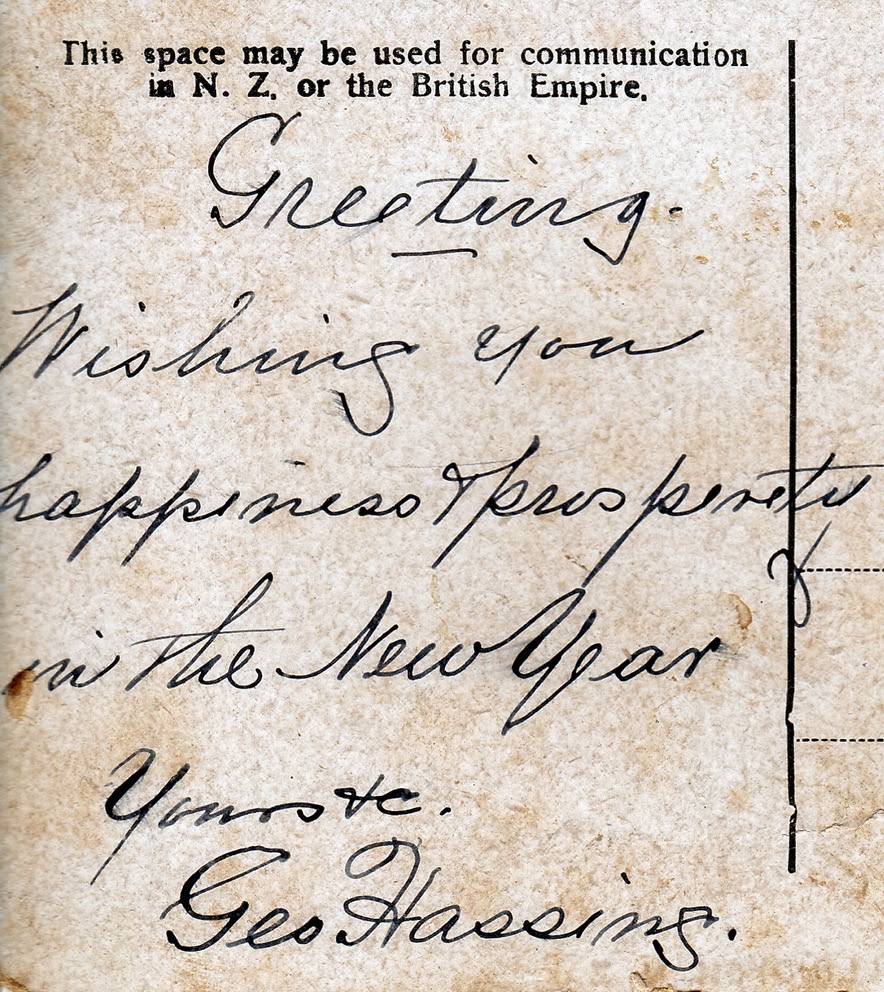 This space may be used for communication
in N. Z. or the British Empire.
Greeting.
Wishing you
happiness & prosperity
in the New Year
Yours &c.
Geo Hassing.